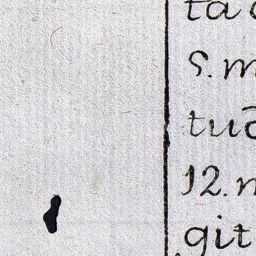 ta
S. m
tuō
12. n
git